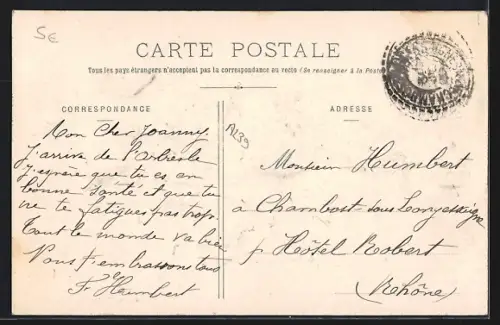 5€
CARTE POSTALE
Tous les pays étrangers n'acceptent pas la correspondance au recto (Se renseigner à la Poste)
CORRESPONDANCE
Mon Cher Joanny
J'arrive de l'arbresle
J'espère que tu es en
bonne santé et que tu
ne te fatigues pas trop.
Tout le monde va bien
Nous t'embrassons tous
F. Humbert
A239
ADRESSE
Monsieur Humbert
à Chambost sous Longessaigne
Hôtel Robert
(Rhône)